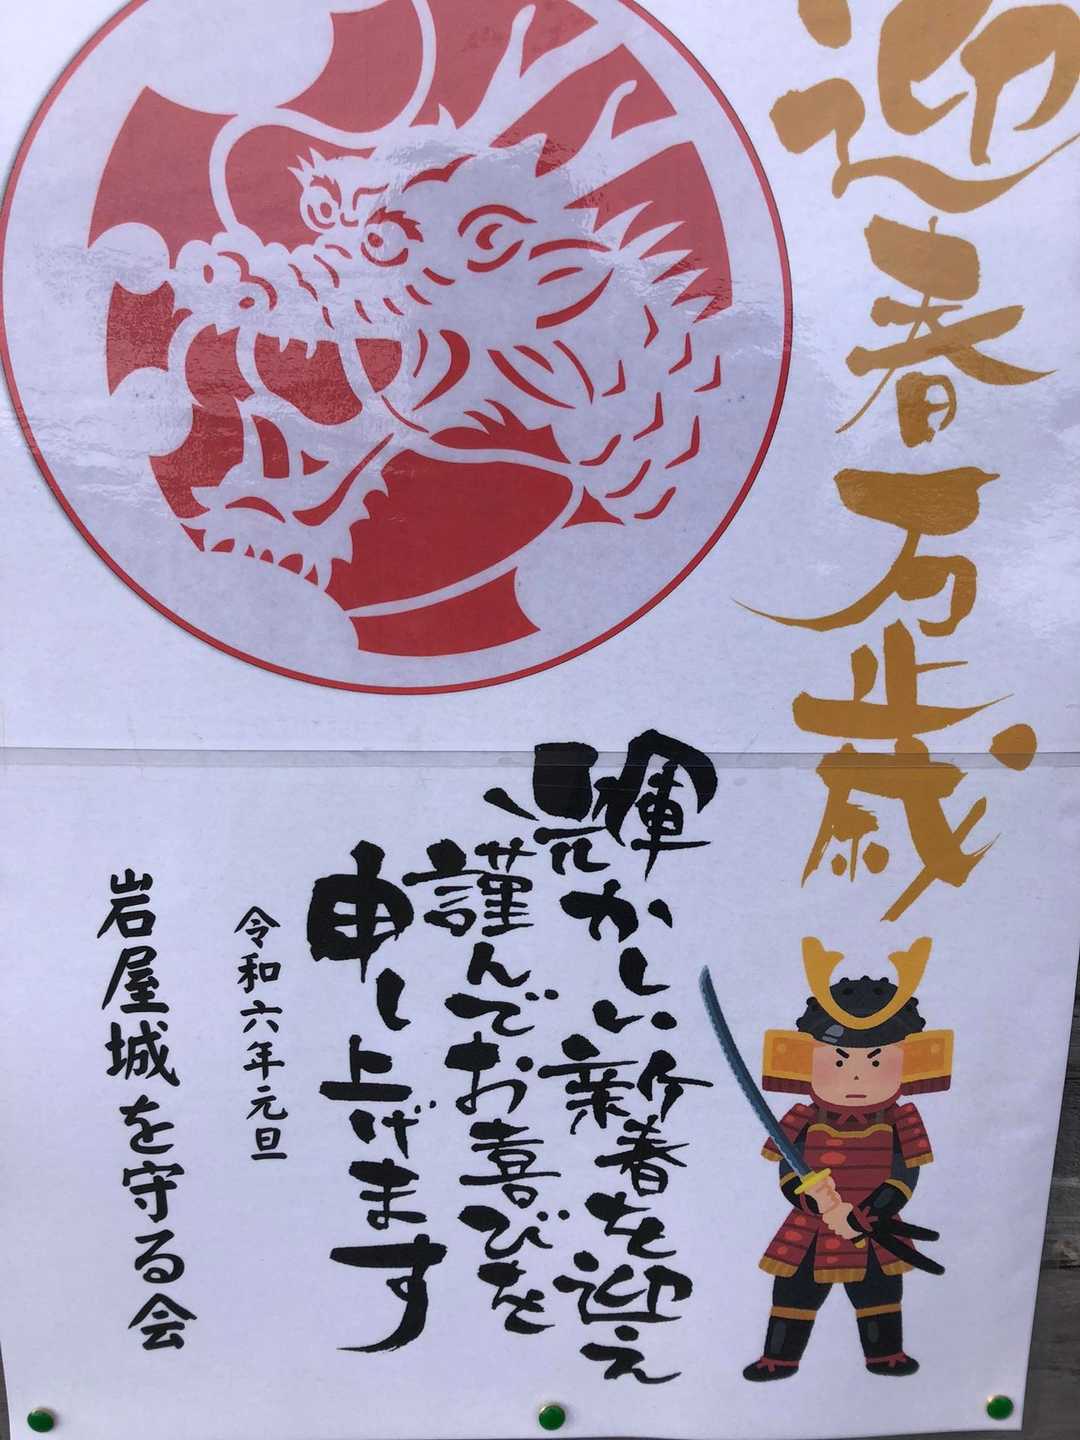 迎春万歳
輝かしい新春を迎え
謹んでお喜びを
申し上げます
令和六年元旦
岩屋城を守る会